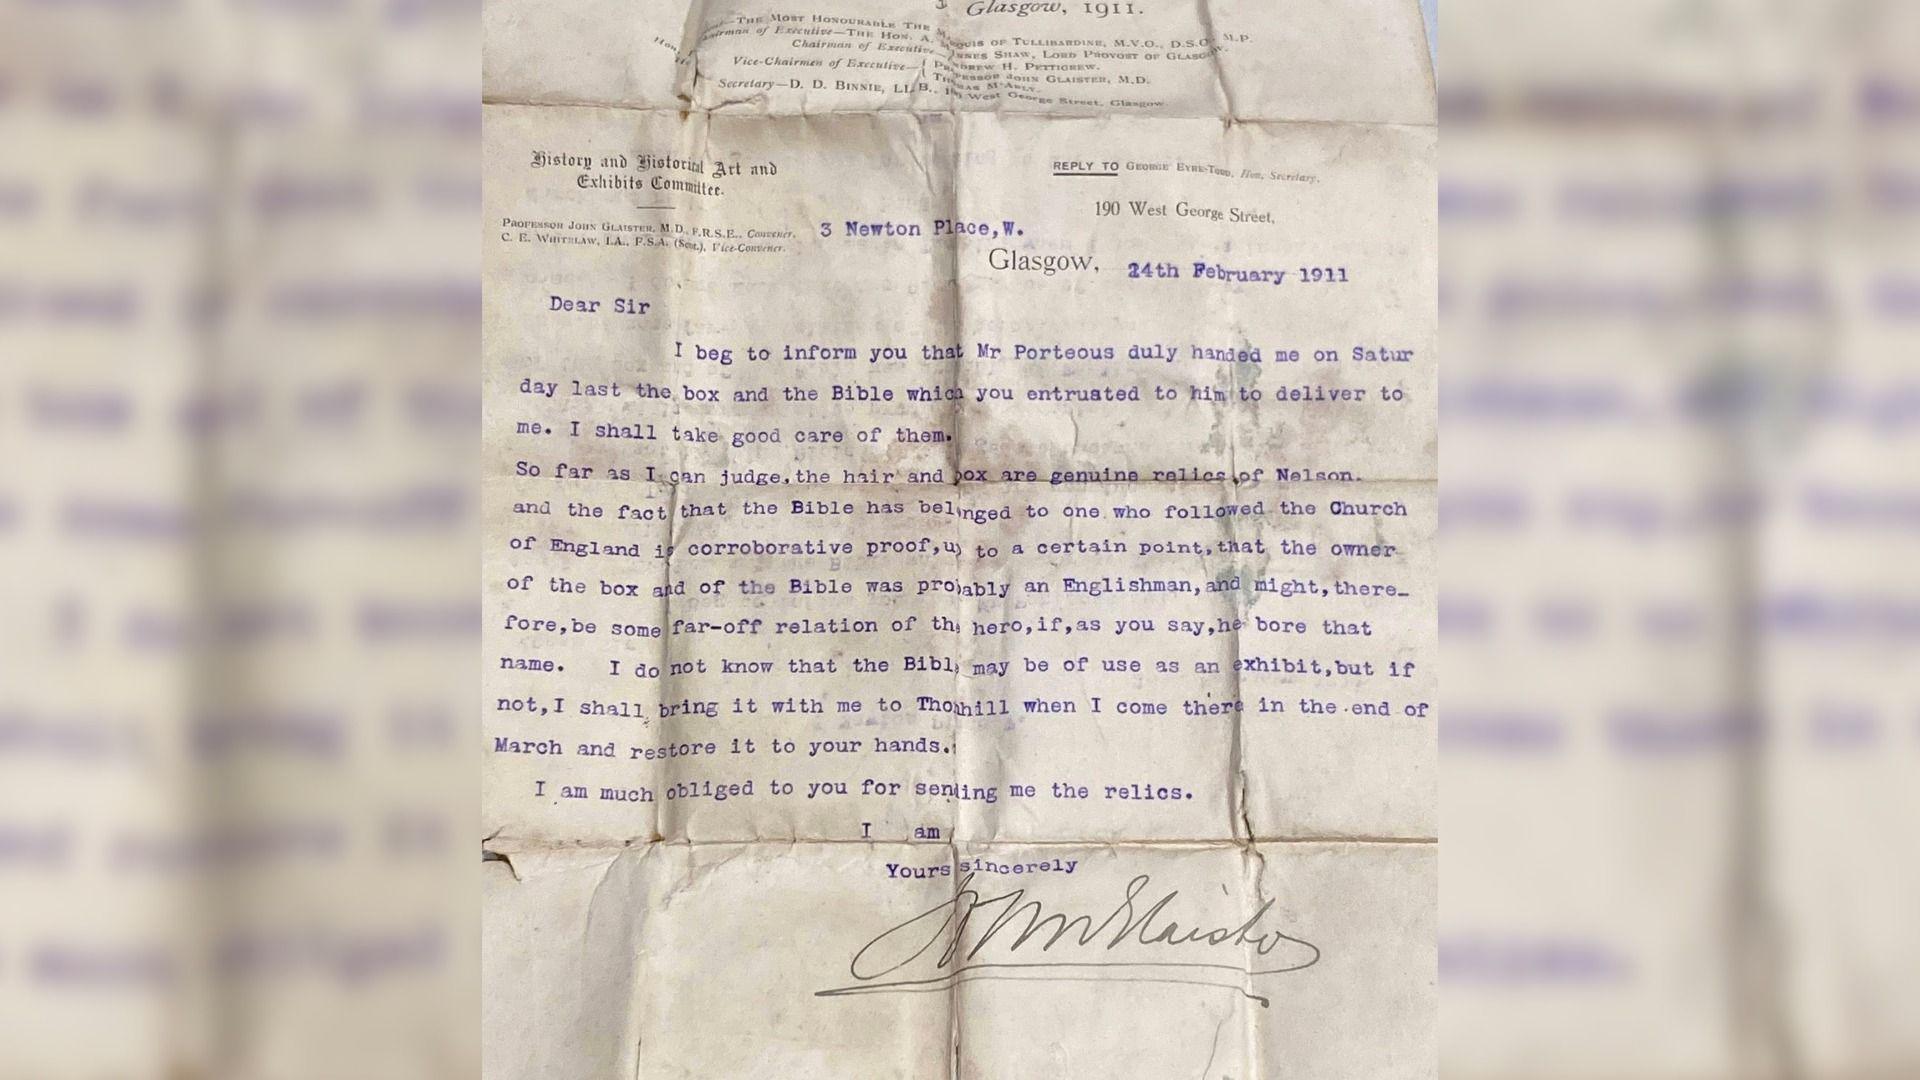 Glasgow, 1911.
THE MOST HONOURABLE THE MARQUIS OF TULLIBARDINE, M.V.O., D.S.O., M.P.
Chairman of Executive—THE HON. A. M'INNES SHAW, LORD PROVOST OF GLASGOW.
Chairman of Executive—ANDREW H. PETTIGREW.
Vice-Chairmen of Executive—{ PROFESSOR JOHN GLAISTER, M.D.
THOMAS M'ARLY.
Secretary—D. D. BINNIE, LL.B., 190 West George Street, Glasgow
History and Historical Art and
Exhibits Committee.
PROFESSOR JOHN GLAISTER, M.D., F.R.S.E., Convener.
C. E. WHITELAW, I.A., F.S.A. (Scot.), Vice-Convener.
REPLY TO GEORGE EYRE-TODD, Hon. Secretary,
190 West George Street,
3 Newton Place,W.
Glasgow, 24th February 1911
Dear Sir
I beg to inform you that Mr Porteous duly handed me on Satur
day last the box and the Bible which you entrusted to him to deliver to
me. I shall take good care of them.
So far as I can judge,the hair and box are genuine relics of Nelson.
and the fact that the Bible has belonged to one who followed the Church
of England is corroborative proof,up to a certain point,that the owner
of the box and of the Bible was probably an Englishman,and might,there-
fore,be some far-off relation of the hero,if,as you say,he bore that
name. I do not know that the Bible may be of use as an exhibit,but if
not,I shall bring it with me to Thornhill when I come there in the end of
March and restore it to your hands.
I am much obliged to you for sending me the relics.
I am
Yours sincerely
John Glaister